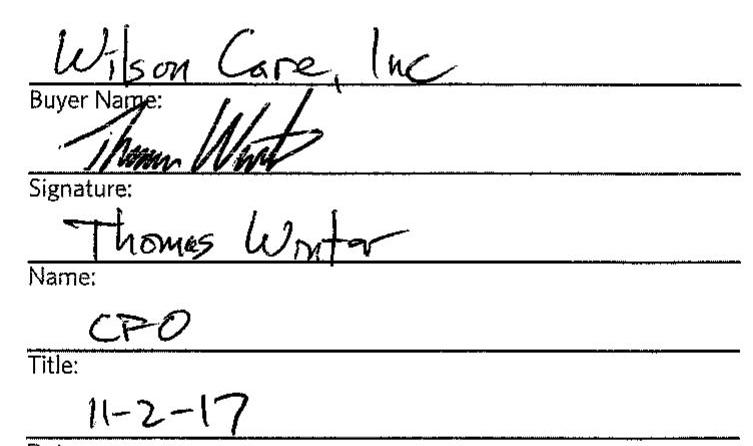 Wilson Care, Inc
Buyer Name:
Thomas Winter
Signature:
Thomas Winter
Name:
CFO
Title:
11-2-17